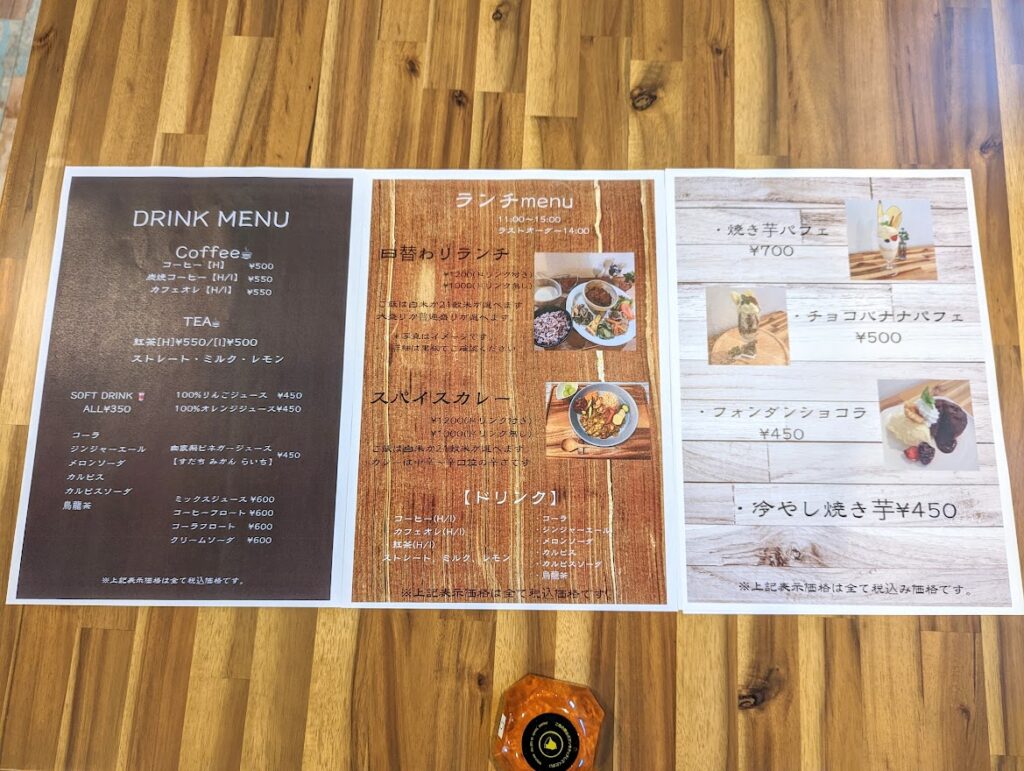 DRINK MENU
Coffee
コーヒー【H】 ¥500
炭焼コーヒー【H/I】 ¥550
カフェオレ【H/I】 ¥550
TEA
紅茶[H]¥550/[I]¥500
ストレート・ミルク・レモン
SOFT DRINK
ALL¥350
コーラ
ジンジャーエール
メロンソーダ
カルピス
カルピスソーダ
烏龍茶
100%りんごジュース ¥450
100%オレンジジュース¥450
ビネガージュース ¥450
【すだち みかん らいち】
ミックスジュース ¥600
コーヒーフロート ¥600
コーラフロート ¥600
クリームソーダ ¥600
※上記表示価格は全て税込価格です。
ランチmenu
11:00～15:00
ラストオーダー14:00
日替わりランチ
¥1200(ドリンク付き)
¥1000(ドリンク無し)
ご飯は白米か21穀米が選べます
大盛りか普通盛りが選べます。
※写真はイメージです
スパイスカレー
¥1200(ドリンク付き)
¥1000(ドリンク無し)
ご飯は白米か21穀米が選べます
カレーは中辛～辛口位の辛さです
【ドリンク】
コーヒー(H/I)
カフェオレ(H/I)
紅茶(H/I)
ストレート、ミルク、レモン
・コーラ
・ジンジャーエール
・メロンソーダ
・カルピス
・カルピスソーダ
・烏龍茶
※上記表示価格は全て税込価格です。
・焼き芋パフェ
¥700
・チョコバナナパフェ
¥500
・フォンダンショコラ
¥450
・冷やし焼き芋¥450
※上記表示価格は全て税込み価格です。